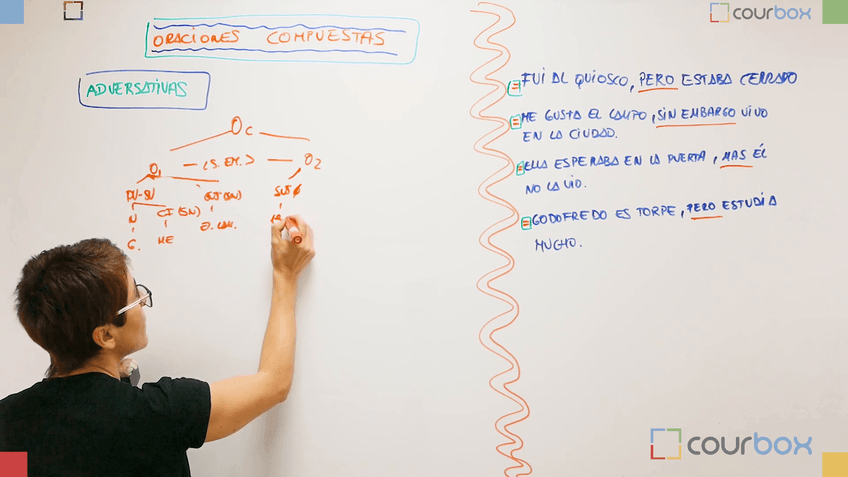 courbox
ORACIONES COMPUESTAS
ADVERSATIVAS
Oc
O1 — <S. EM.> — O2
PV-SV SUJ (SN) SUJ
N CI (SN)
G. ME E. CAM.
= FUI AL QUIOSCO, PERO ESTABA CERRADO
= ME GUSTA EL CAMPO, SIN EMBARGO VIVO
EN LA CIUDAD.
= ELLA ESPERABA EN LA PUERTA, MAS ÉL
NO LA VIO.
= GODOFREDO ES TORPE, PERO ESTUDIA
MUCHO.
courbox